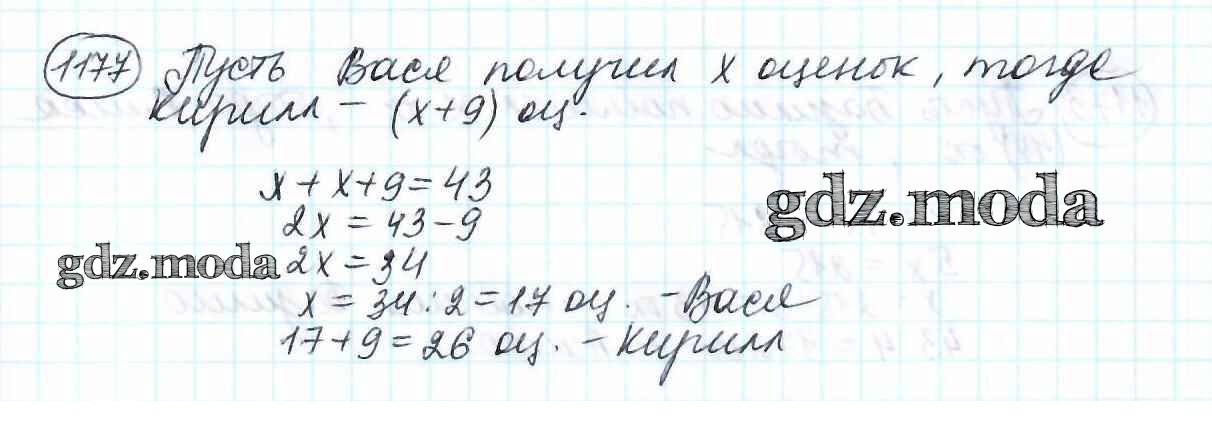 1177 Пусть Вася получил x оценок, тогда
Кирилл – (x+9) оц.
x + x + 9 = 43
2x = 43 – 9
gdz.moda
gdz.moda 2x = 34
x = 34 : 2 = 17 оц. – Вася
17 + 9 = 26 оц. – Кирилл